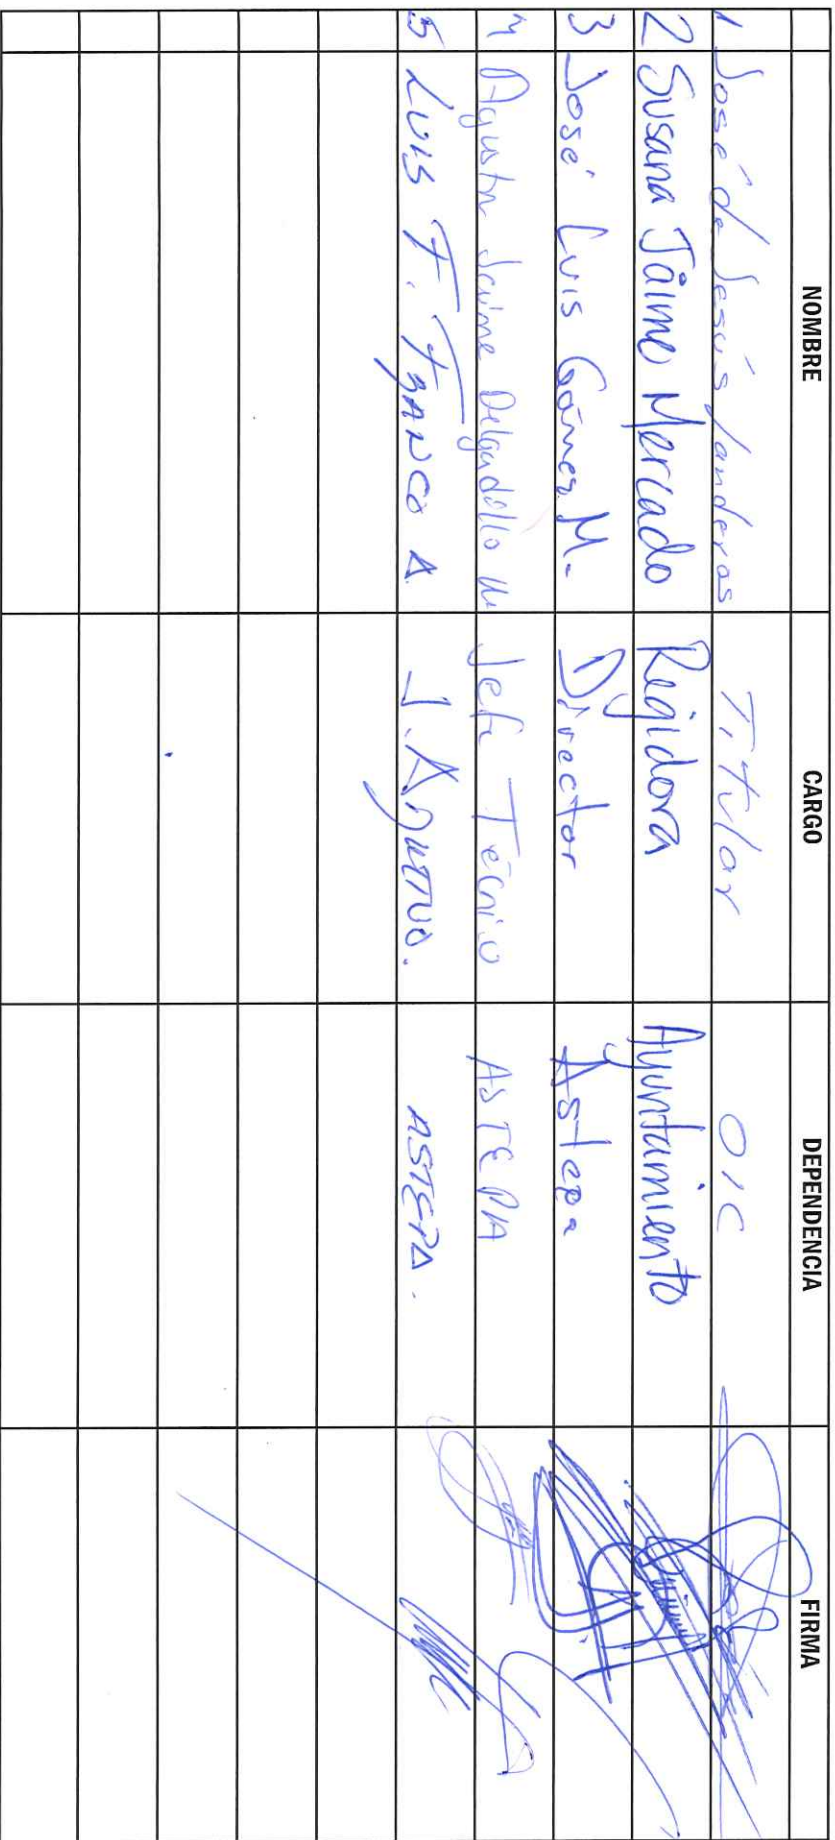 NOMBRE CARGO DEPENDENCIA FIRMA
1 José de Jesús Landeros Titular OIC
2 Susana Jáime Mercado Regidora Ayuntamiento
3 José Luis Gómez M. Director Astepa
4 Agustín Jaime Delgadillo Jefe Técnico ASTEPA
5 LUIS F. FRANCO A. ASTEPA.